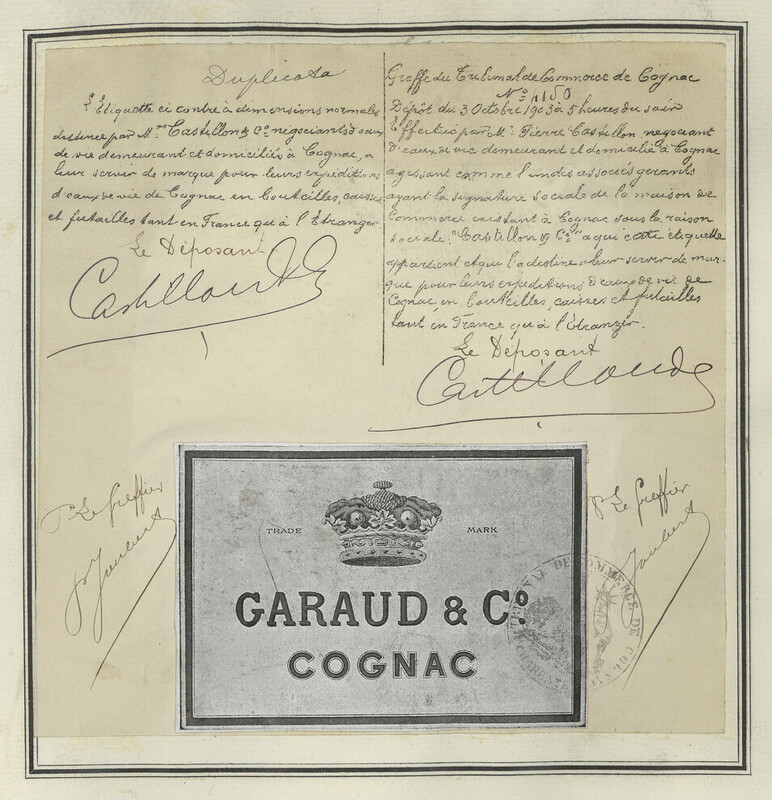 Duplicata
L'Etiquette ci contre à dimensions normales
destinée par Mrs Castillon & Cie négociants d'eaux
de vie demeurant et domiciliés à Cognac, a
leur servir de marque pour leurs expéditions
d'eaux de vie de Cognac en bouteilles, caisses
et futailles tant en France qu'à l'Etranger
Le Déposant
Greffe du Tribunal de Commerce de Cognac
No 4150
Dépôt du 3 Octobre 1903 à 5 heures du soir
Effectué par Mr Pierre Castillon négociant
d'eaux de vie demeurant et domicilié à Cognac
agissant comme l'un des associés gérants
ayant la signature sociale de la maison de
Commerce existant à Cognac sous la raison
sociale "Castillon & Cie" a qui cette étiquette
appartient et qui l'a destine a leur servir de mar-
que pour leurs expéditions d'eaux de vie de
Cognac en bouteilles, caisses et futailles
tant en France qu'à l'étranger.
Le Déposant
Pr Le Greffier
Pr Le Greffier
TRADE MARK
GARAUD & Co
COGNAC
TRIBUNAL DE COMMERCE DE COGNAC